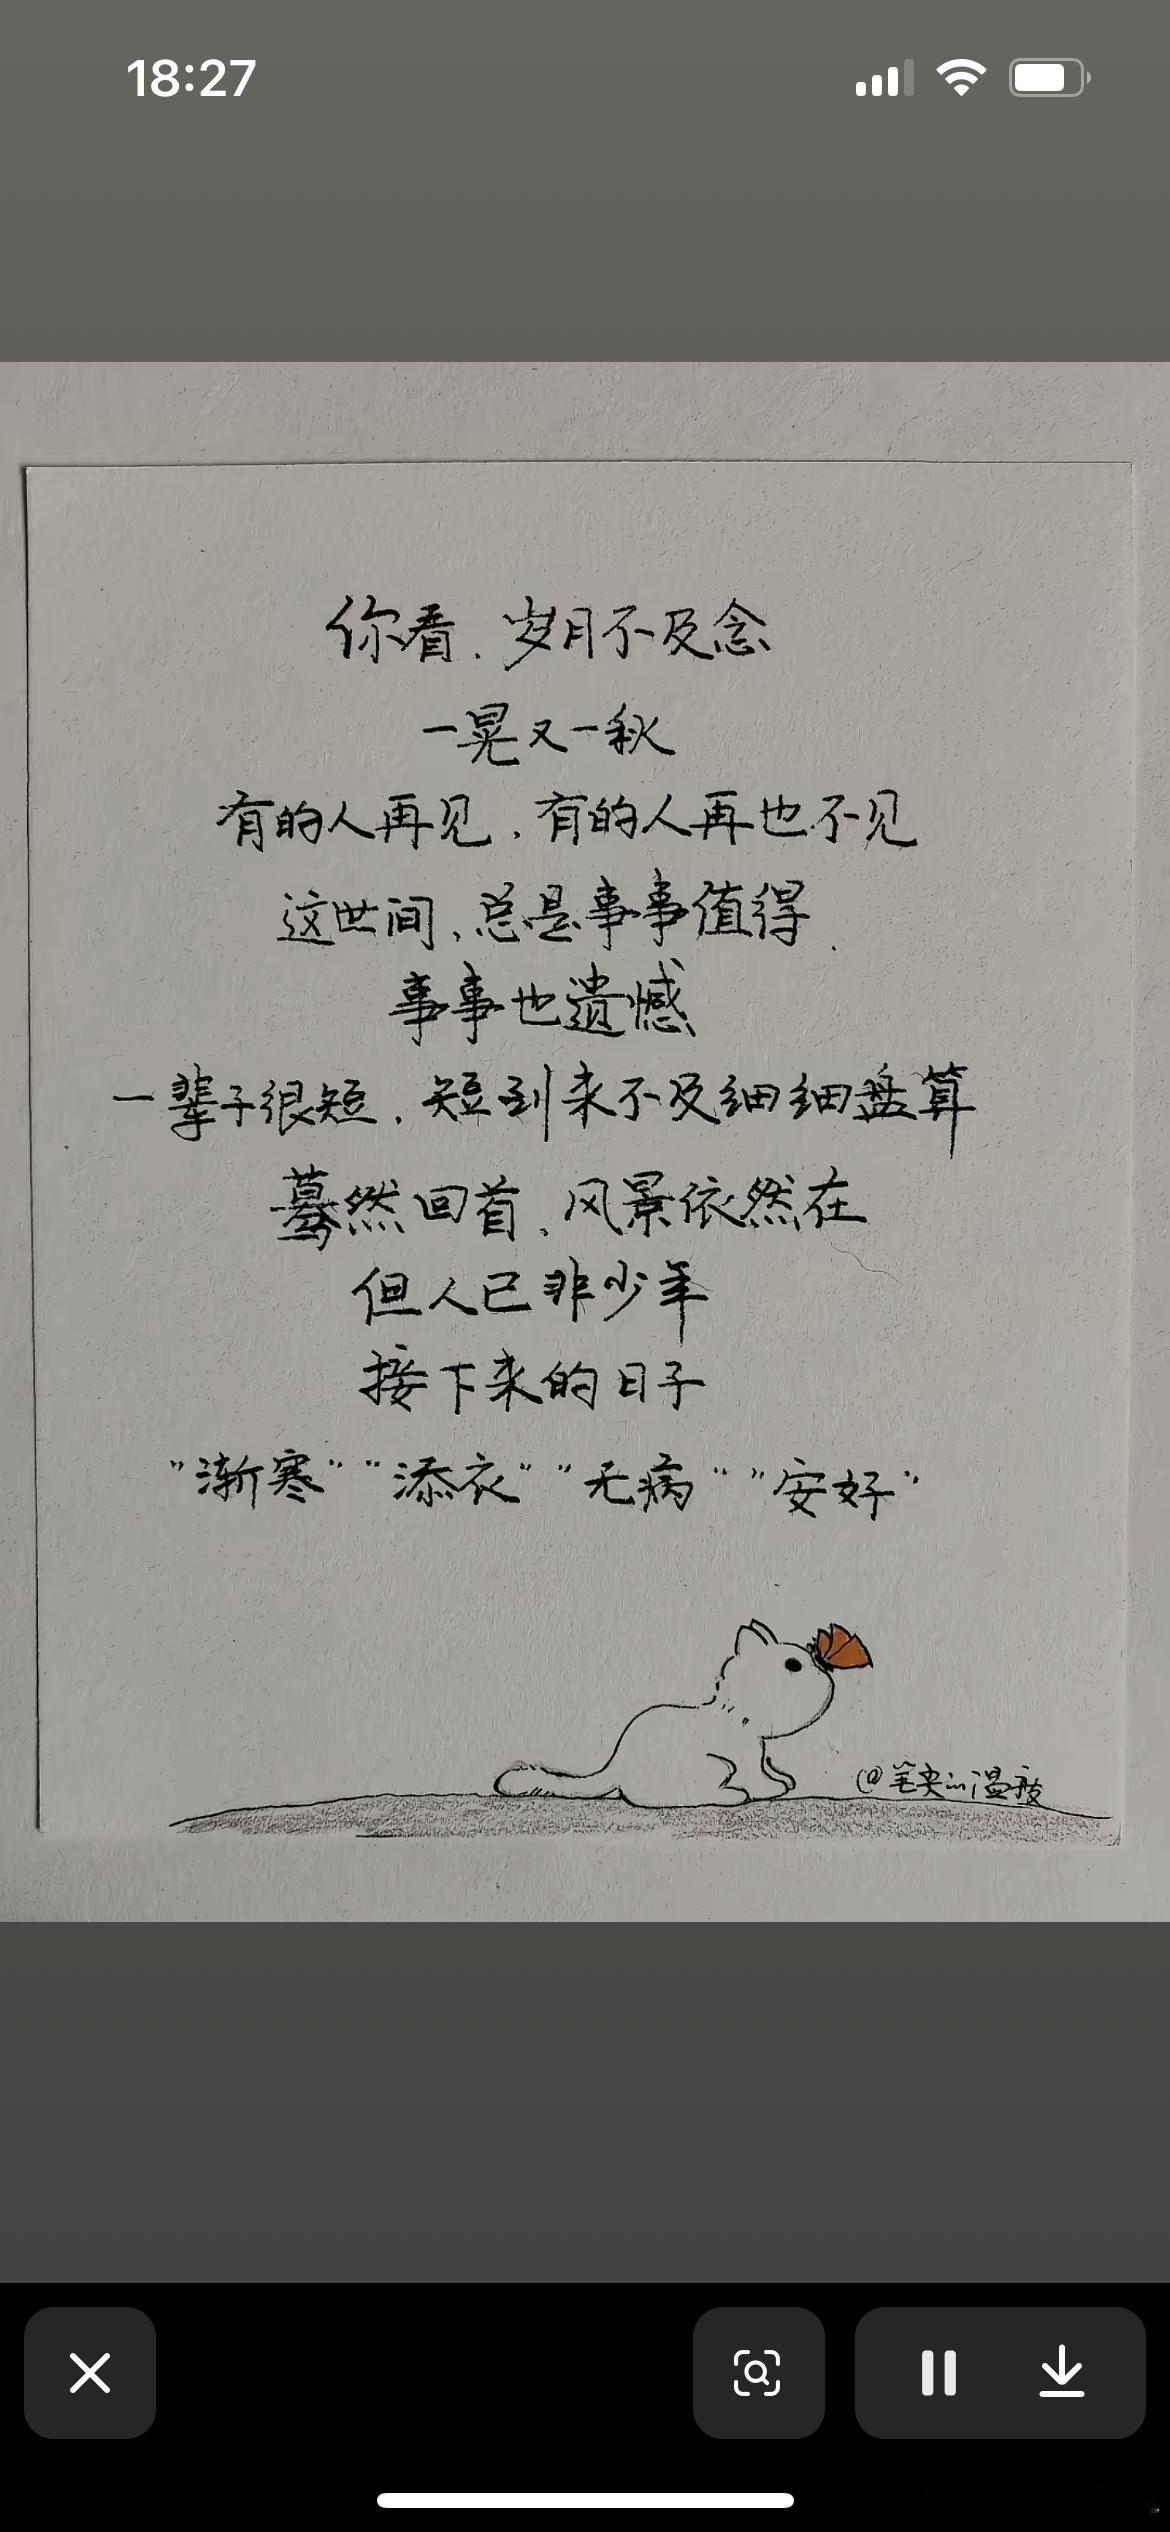 18:27
你看.岁月不及念
一晃又一秋
有的人再见,有的人再也不见
这世间,总是事事值得.
事事也遗憾
一辈子很短,短到来不及细细盘算
蓦然回首,风景依然在
但人已非少年
接下来的日子
"渐寒""添衣""无病""安好"
@笔尖的温度